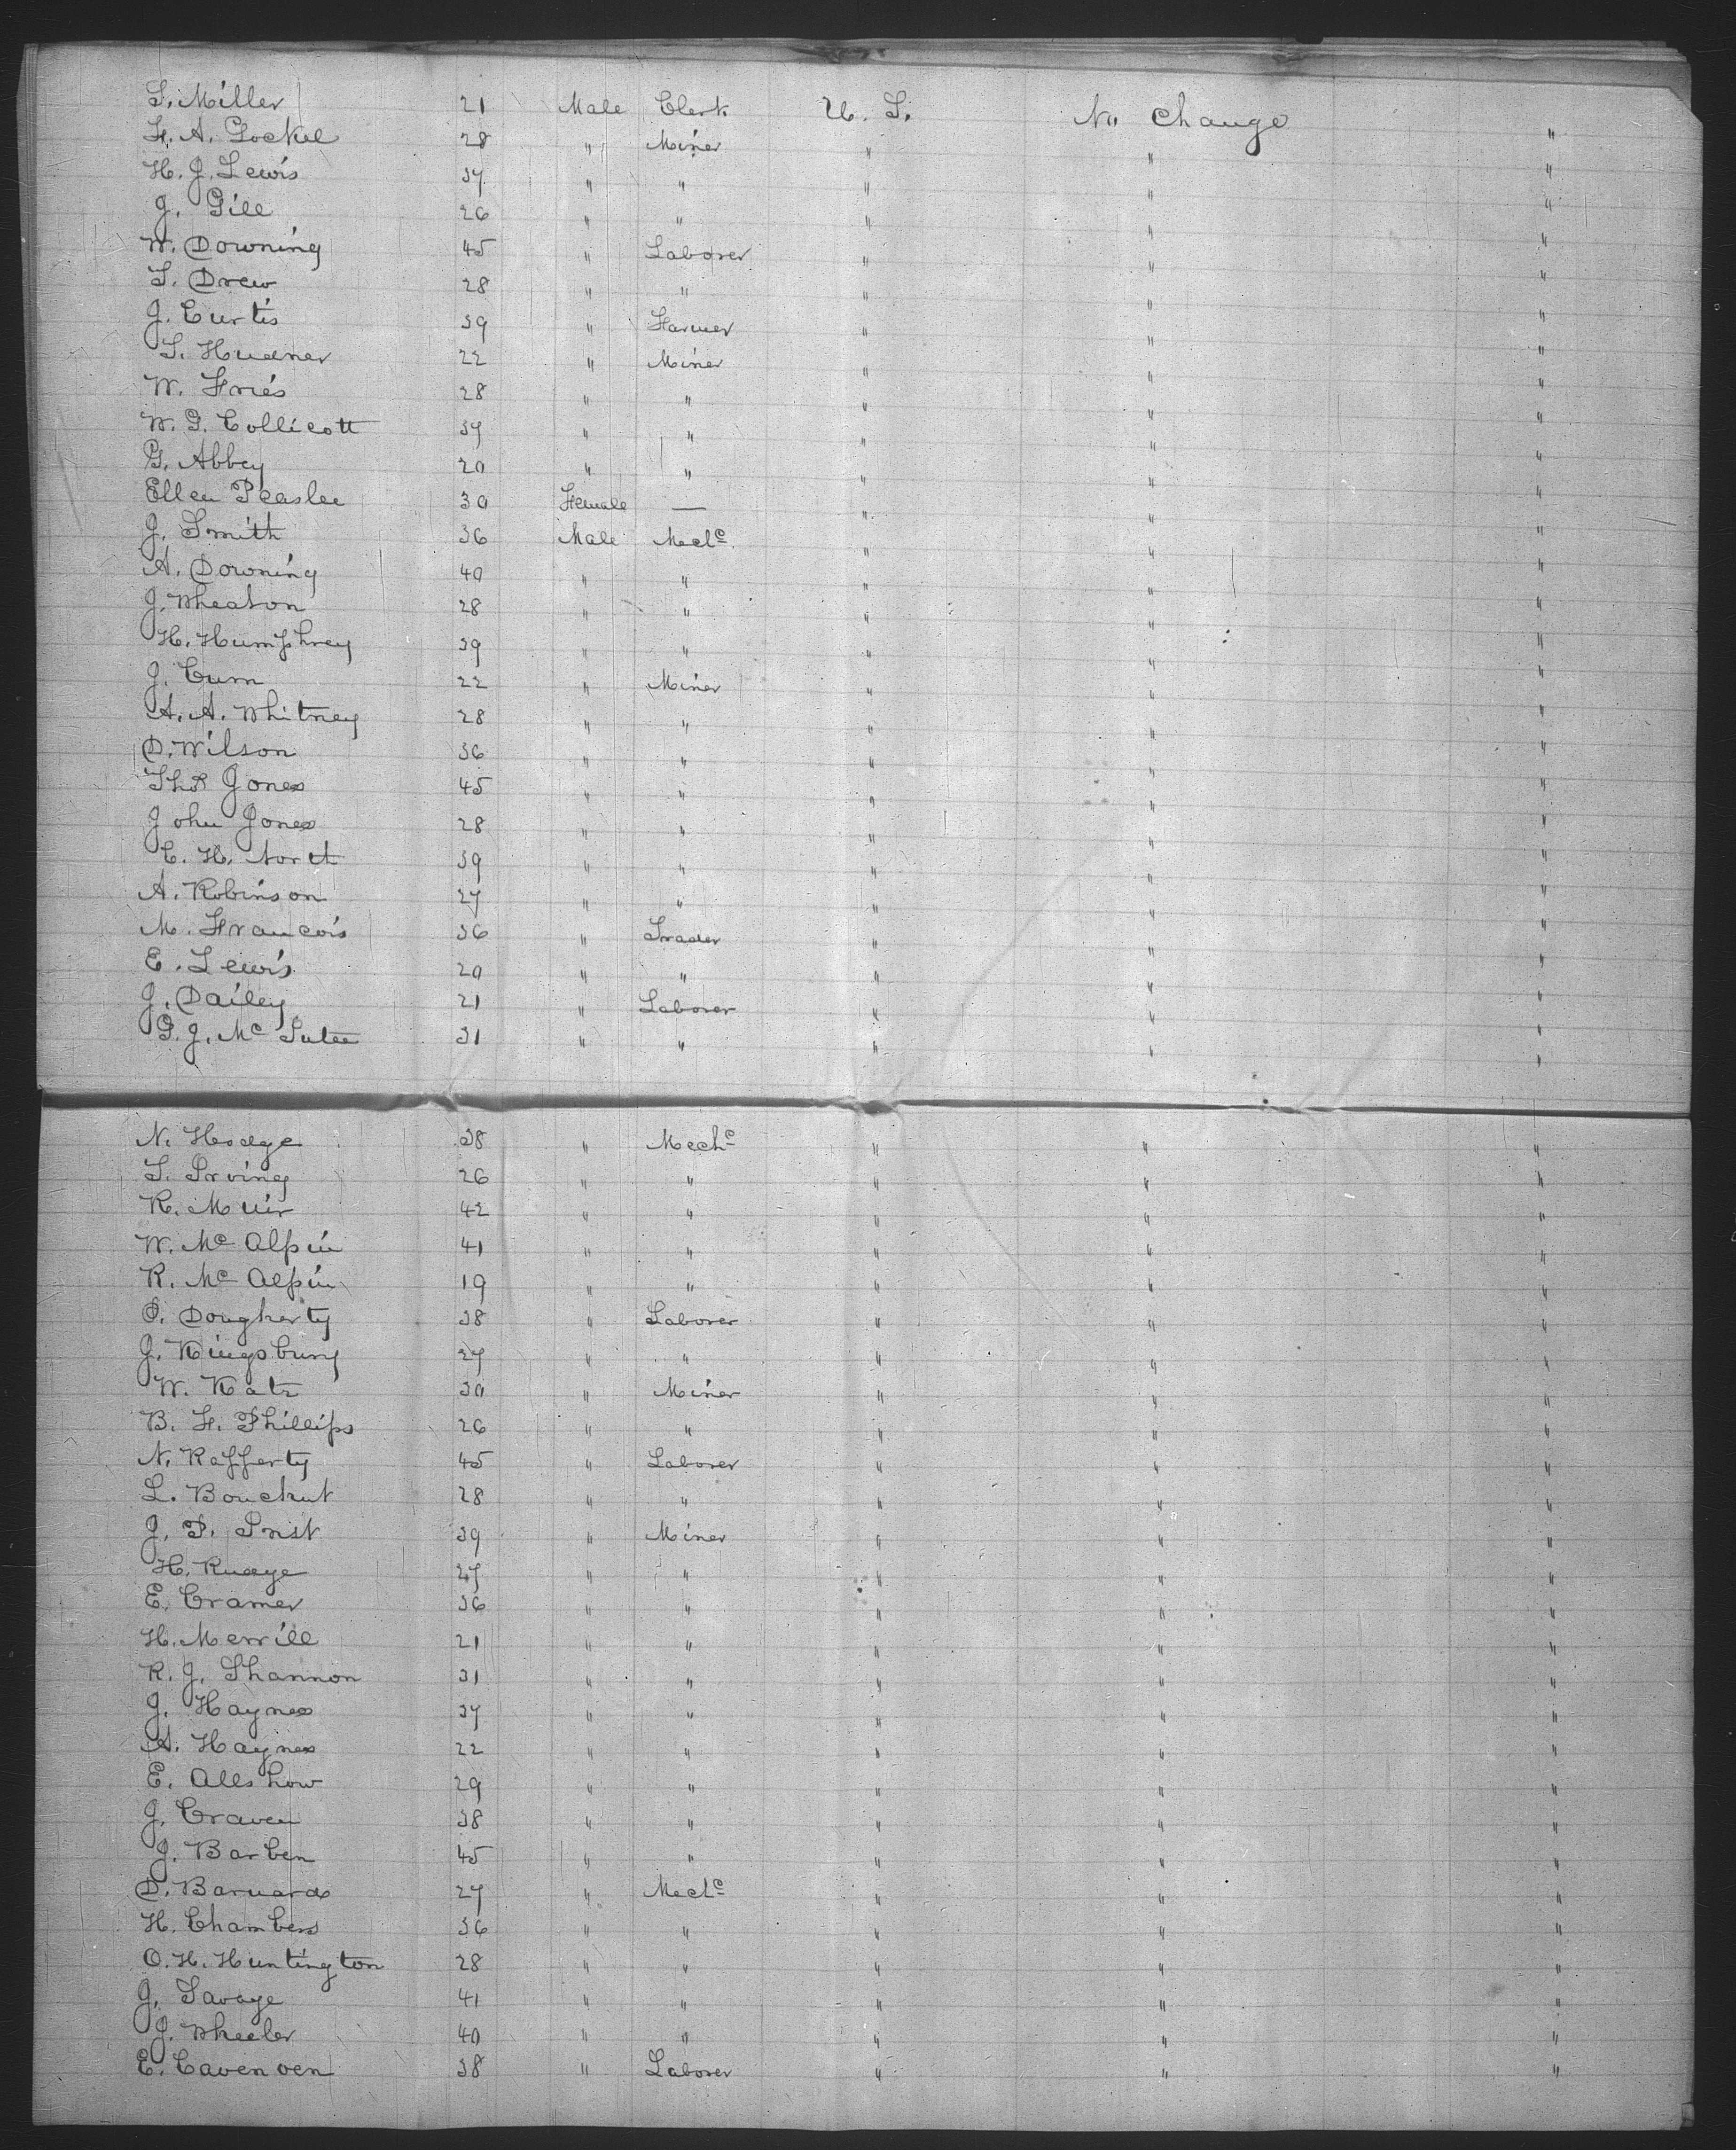 S. Miller 21 Male Clerk U. S. No Change "
F. A. Gockel 28 " Miner " " "
H. J. Lewis 37 " " " " "
J. Gill 26 " " " " "
W. Downing 45 " Laborer " " "
S. Drew 28 " " " " "
J. Curtis 39 " Farmer " " "
S. Hudner 22 " Miner " " "
W. Fries 28 " " " " "
W. G. Collicott 37 " " " " "
G. Abbey 20 " " " " "
Ellen Peaslee 30 Female — " " "
J. Smith 36 Male Mechc " " "
A. Downing 40 " " " " "
J. Wheaton 28 " " " " "
H. Humphrey 39 " " " " "
J. Curn 22 " Miner " " "
A. A. Whitney 28 " " " " "
D. Wilson 36 " " " " "
Ths Jones 45 " " " " "
John Jones 28 " " " " "
C. H. 39 " " " " "
A. Robinson 27 " " " " "
M. Francois 36 " Trader " " "
E. Lewis 20 " " " " "
J. Dailey 21 " Laborer " " "
J. Mc 31 " " " " "
N. Hodge 38 " Mechc " " "
S. Irving 26 " " " " "
R. Muir 42 " " " " "
W. Mc Alpin 41 " " " " "
R. Mc Alpin 19 " " " " "
P. Dougherty 38 " Laborer " " "
J. Kingsbury 27 " " " " "
W. Katz 30 " Miner " " "
B. F. Phillips 26 " " " " "
N. Rafferty 45 " Laborer " " "
L. Bouchut 28 " " " " "
J. P. 39 " Miner " " "
H. Rudge 27 " " " " "
E. Cramer 36 " " " " "
H. Merrill 21 " " " " "
R. J. Shannon 31 " " " " "
J. Haynes 37 " " " " "
A. Haynes 22 " " " " "
E. Allshow 29 " " " " "
J. Craven 38 " " " " "
J. Barben 45 " " " " "
D. Barnard 27 " Mechc " " "
H. Chambers 36 " " " " "
O. H. Huntington 28 " " " " "
J. Savage 41 " " " " "
J. Wheeler 40 " " " " "
E. Cavenoen 38 " Laborer " " "